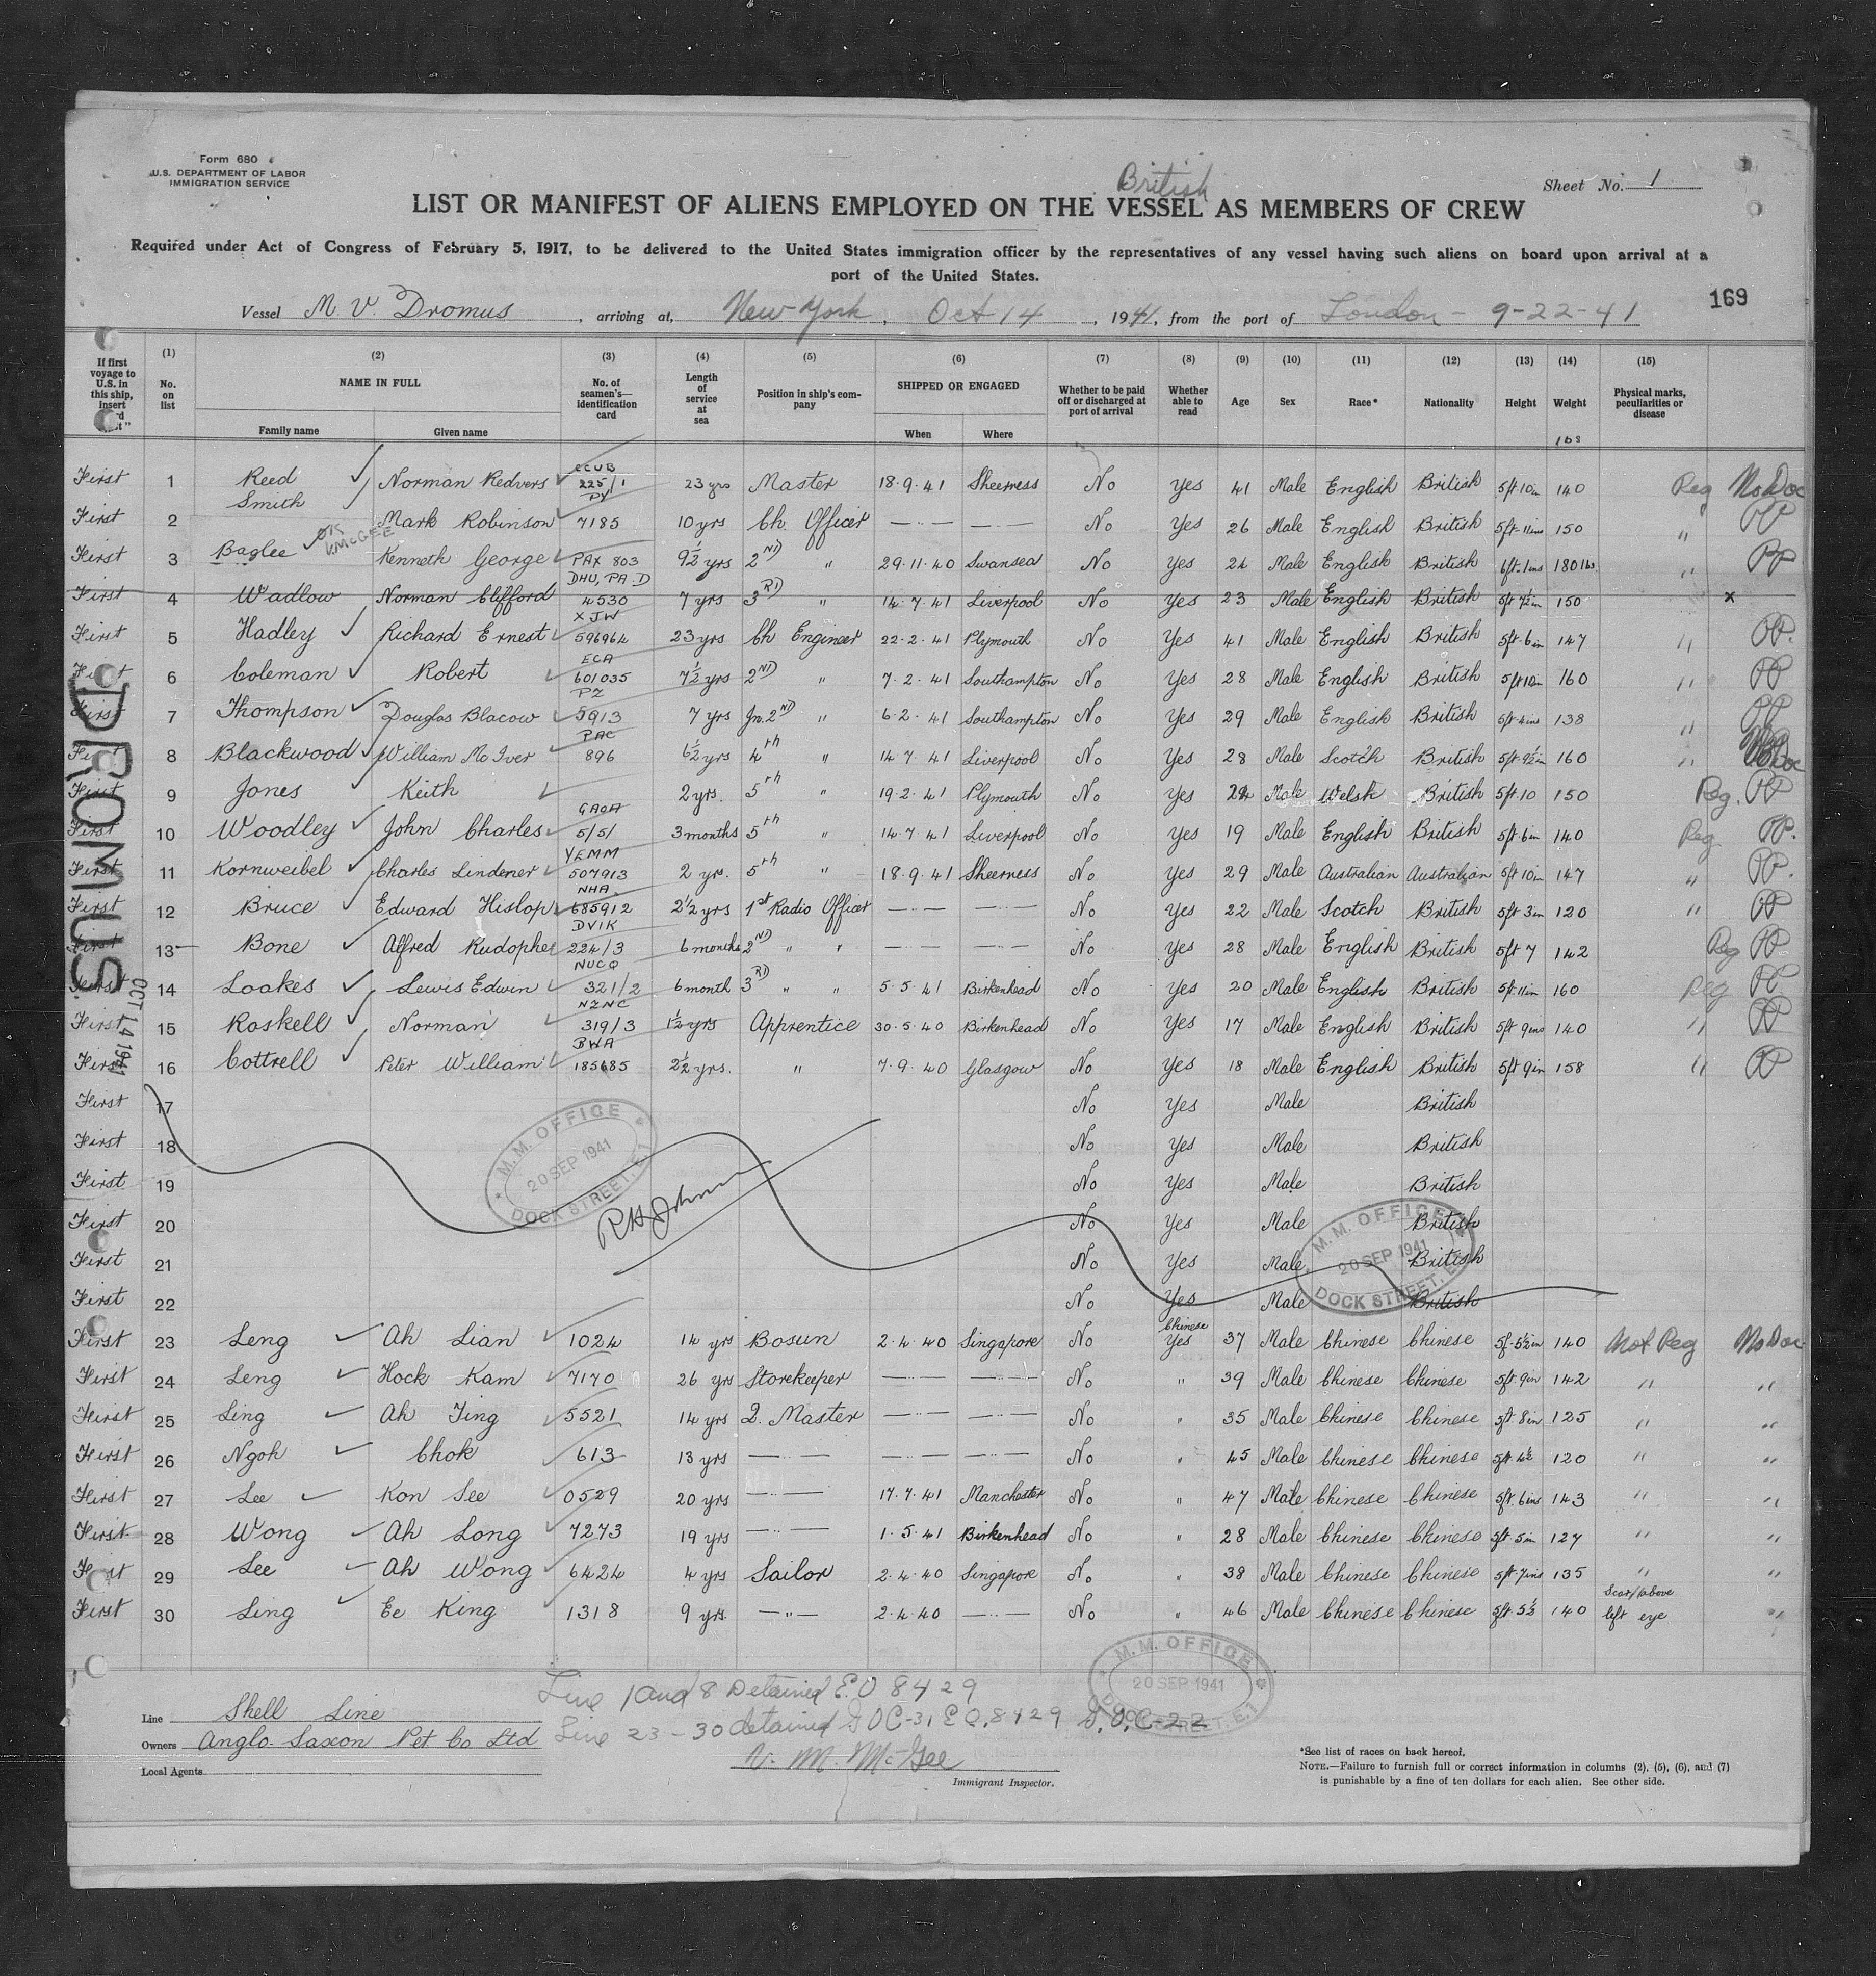 Form 680
U.S. DEPARTMENT OF LABOR
IMMIGRATION SERVICE
Sheet No. 1
British
LIST OR MANIFEST OF ALIENS EMPLOYED ON THE VESSEL AS MEMBERS OF CREW
Required under Act of Congress of February 5, 1917, to be delivered to the United States immigration officer by the representatives of any vessel having such aliens on board upon arrival at a
port of the United States.
169
Vessel M. V. Dromus, arriving at, New York, Oct 14, 1941, from the port of London - 9-22-41
If first voyage to U.S. in this ship, insert
(1) No. on list
(2) NAME IN FULL Family name Given name
(3) No. of seamen's identification card
(4) Length of service at sea
(5) Position in ship's company
(6) SHIPPED OR ENGAGED When Where
(7) Whether to be paid off or discharged at port of arrival
(8) Whether able to read
(9) Age
(10) Sex
(11) Race*
(12) Nationality
(13) Height
(14) Weight
(15) Physical marks, peculiarities or disease
First 1 Reed Norman Redvers CCUB 225/1 23 yrs Master 18.9.41 Sheerness No Yes 41 Male English British 5ft 10in 140 Reg No Doc
First 2 Smith Mark Robinson PY 7185 10 yrs Ch. Officer — — No Yes 26 Male English British 5ft 11ins 150 " PP
First 3 Baglee OK VMcGEE Kenneth George PAX 803 9½ yrs 2ND " 29.11.40 Swansea No Yes 24 Male English British 6ft 1ins 180 lbs " PP
First 4 Wadlow Norman Clifford DHU, PA D 4530 7 yrs 3RD " 14.7.41 Liverpool No Yes 23 Male English British 5ft 7½in 150 x
First 5 Hadley Richard Ernest XJW 596964 23 yrs Ch Engineer 22.2.41 Plymouth No Yes 41 Male English British 5ft 6in 147 " PP.
First 6 Coleman Robert ECA 601035 7½ yrs 2ND " 7.2.41 Southampton No Yes 28 Male English British 5ft 10in 160 " PP
First 7 Thompson Douglas Blacow PZ 5913 7 yrs Jn. 2ND " 6.2.41 Southampton No Yes 29 Male English British 5ft 4ins 138 " PP
First 8 Blackwood William McIver PAC 896 6½ yrs 4th " 14.7.41 Liverpool No Yes 28 Male Scotch British 5ft 9½in 160 " No Doc
First 9 Jones Keith 2 yrs. 5th " 19.2.41 Plymouth No Yes 24 Male Welsh British 5ft 10 150 Reg. PP
First 10 Woodley John Charles GAOA 5/51 3 months 5th " 14.7.41 Liverpool No Yes 19 Male English British 5ft 6in 140 Reg. PP.
First 11 Kornweibel Charles Lindener YEMM 507913 2 yr. 5th " 18.9.41 Sheerness No Yes 29 Male Australian Australian 5ft 10in 147 " PP.
First 12 Bruce Edward Hislop NHA 685912 2½ yrs 1st Radio Officer — — No Yes 22 Male Scotch British 5ft 3in 120 " PP
First 13 Bone Alfred Rudophe DVIK 224/3 6 months 2ND " " — — No Yes 28 Male English British 5ft 7 142 Reg PP
First 14 Loakes Lewis Edwin NUCQ 321/2 6 month 3RD " " 5.5.41 Birkenhead No Yes 20 Male English British 5ft 11in 160 Reg PP
First 15 Roskell Norman NZNC 319/3 1½ yrs Apprentice 30.5.40 Birkenhead No Yes 17 Male English British 5ft 9ins 140 " PP
First 16 Cottrell Peter William BWA 185685 2½ yrs. " 7.9.40 Glasgow No Yes 18 Male English British 5ft 9in 158 " PP
First 17 No Yes Male British
First 18 No Yes Male British
First 19 No Yes Male British
First 20 No Yes Male British
First 21 No Yes Male British
First 22 No Yes Male British
First 23 Leng Ah Lian 1024 14 yrs Bosun 2.4.40 Singapore No Chinese Yes 37 Male Chinese Chinese 5f-5½in 140 Not Reg No Doc
First 24 Leng Hock Kam 7170 26 yrs Storekeeper — — No " 39 Male Chinese Chinese 5ft 9in 142 " "
First 25 Ling Ah Jing 5521 14 yrs Q. Master — — No " 35 Male Chinese Chinese 5ft 8in 125 " "
First 26 Ngoh Chok 613 13 yrs — — — No " 45 Male Chinese Chinese 5ft 4½ 120 " "
First 27 Lee Kon See 0529 20 yrs — 17.7.41 Manchester No " 47 Male Chinese Chinese 5ft 6ins 143 " "
First 28 Wong Ah Long 7273 19 yrs — 1.5.41 Birkenhead No " 28 Male Chinese Chinese 5ft 5in 127 " "
First 29 Lee Ah Wong 6424 4 yrs Sailor 2.4.40 Singapore No " 38 Male Chinese Chinese 5ft 7ins 135 " "
First 30 Ling Ee King 1318 9 yrs. — " — 2.4.40 — No " 46 Male Chinese Chinese 5ft 5½ 140 Scar/above left eye "
DROMUS
OCT 14 1941
M. M. OFFICE
20 SEP 1941
DOCK STREET, E.1
M. M. OFFICE
20 SEP 1941
DOCK STREET, E.1
M. M. OFFICE
20 SEP 1941
DOCK STREET, E.1
Line 1 and 8 Detained E.O 8429
Line 23-30 detained D O C-31 E O. 8429 D. O. C-22
Line Shell Line
Owners Anglo. Saxon Pet. Co Ltd
Local Agents
V. M. McGee
Immigrant Inspector.
*See list of races on back hereof.
NOTE.—Failure to furnish full or correct information in columns (2), (5), (6), and (7)
is punishable by a fine of ten dollars for each alien. See other side.